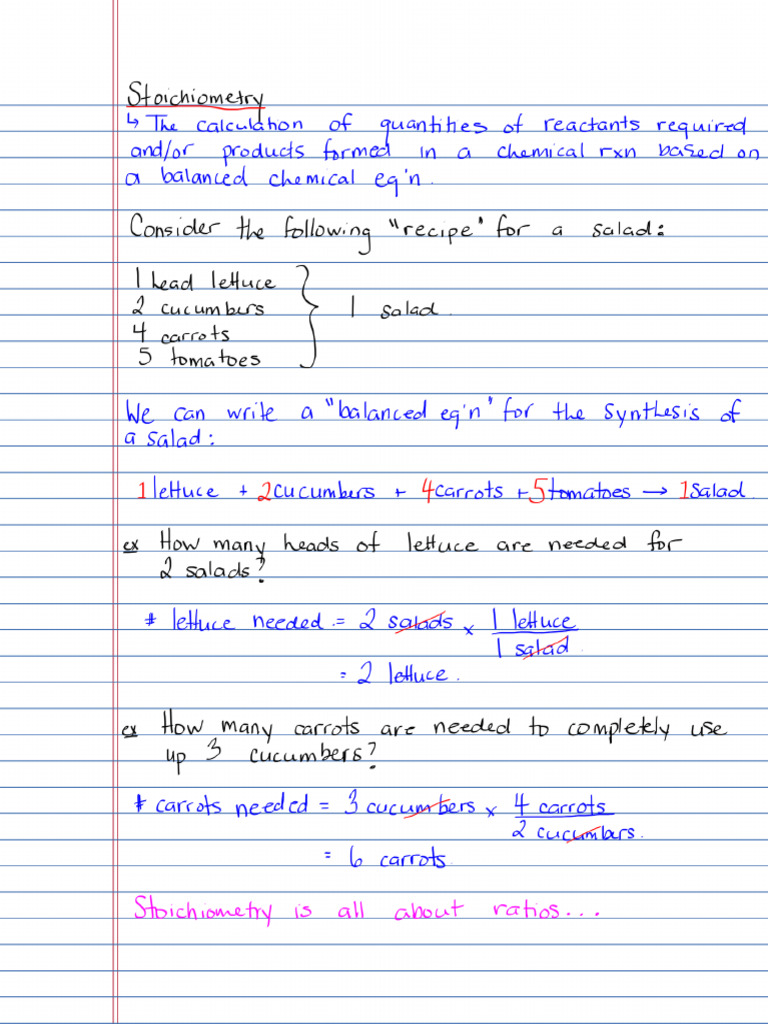 Stoichiometry
↳ The calculation of quantities of reactants required
and/or products formed in a chemical rxn based on
a balanced chemical eq'n.
Consider the following "recipe" for a salad:
1 head lettuce
2 cucumbers
4 carrots
5 tomatoes
} 1 salad.
We can write a "balanced eq'n" for the synthesis of
a salad:
1 lettuce + 2 cucumbers + 4 carrots + 5 tomatoes → 1 salad.
ex How many heads of lettuce are needed for
2 salads?
# lettuce needed = 2 salads x 1 lettuce
1 salad.
= 2 lettuce.
ex How many carrots are needed to completely use
up 3 cucumbers?
# carrots needed = 3 cucumbers x 4 carrots
2 cucumbers.
= 6 carrots.
Stoichiometry is all about ratios...